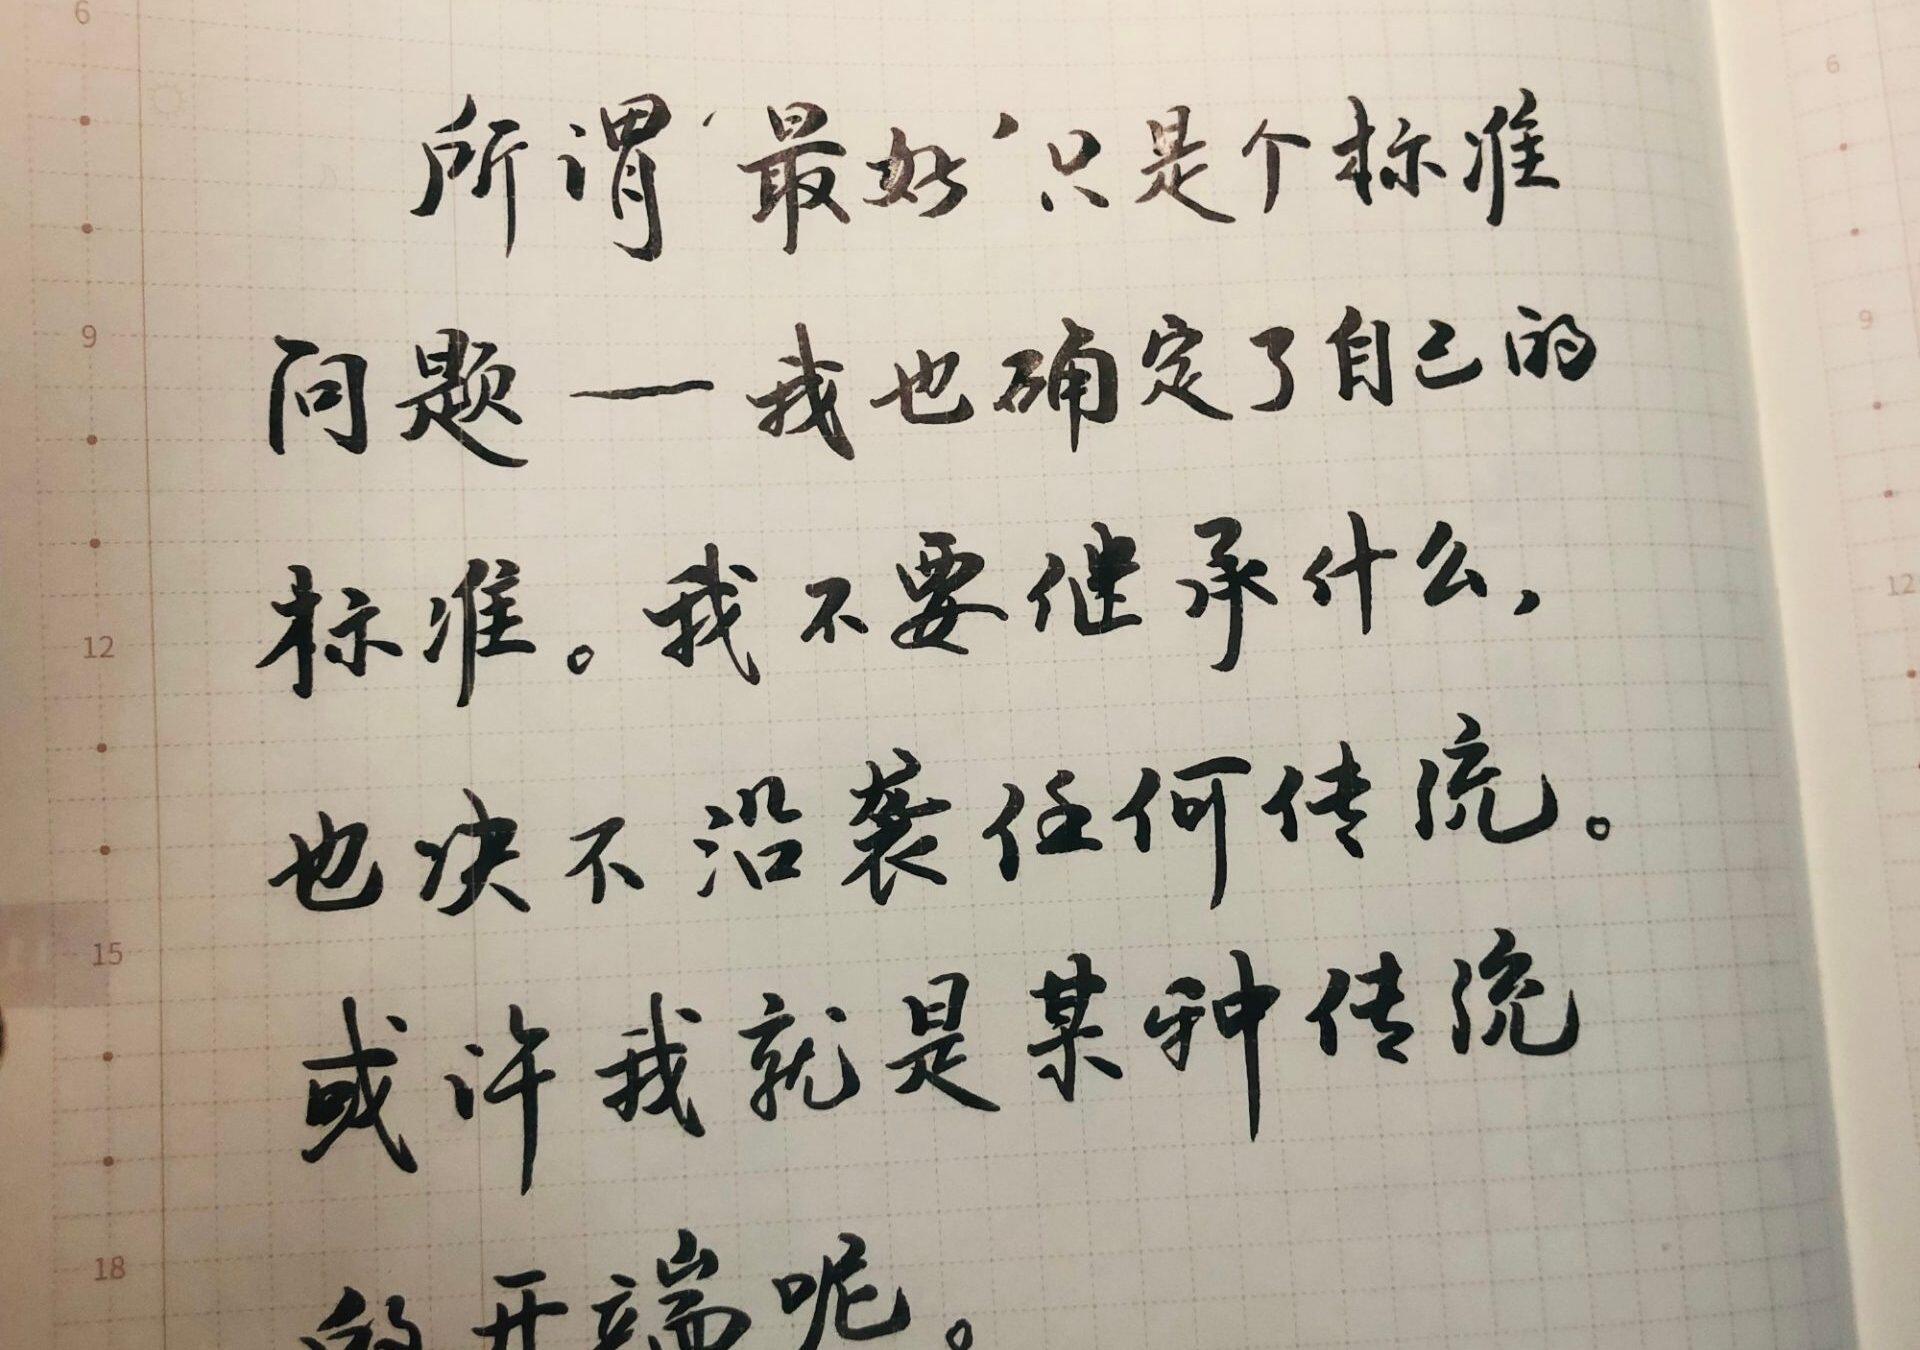 6
所谓‘最好’只是个标准
6
9
问题——我也确定了自己的
9
标准。我不要继承什么，
12
12
也决不沿袭任何传统。
11
15
或许我就是某种传统
18
的开端呢。